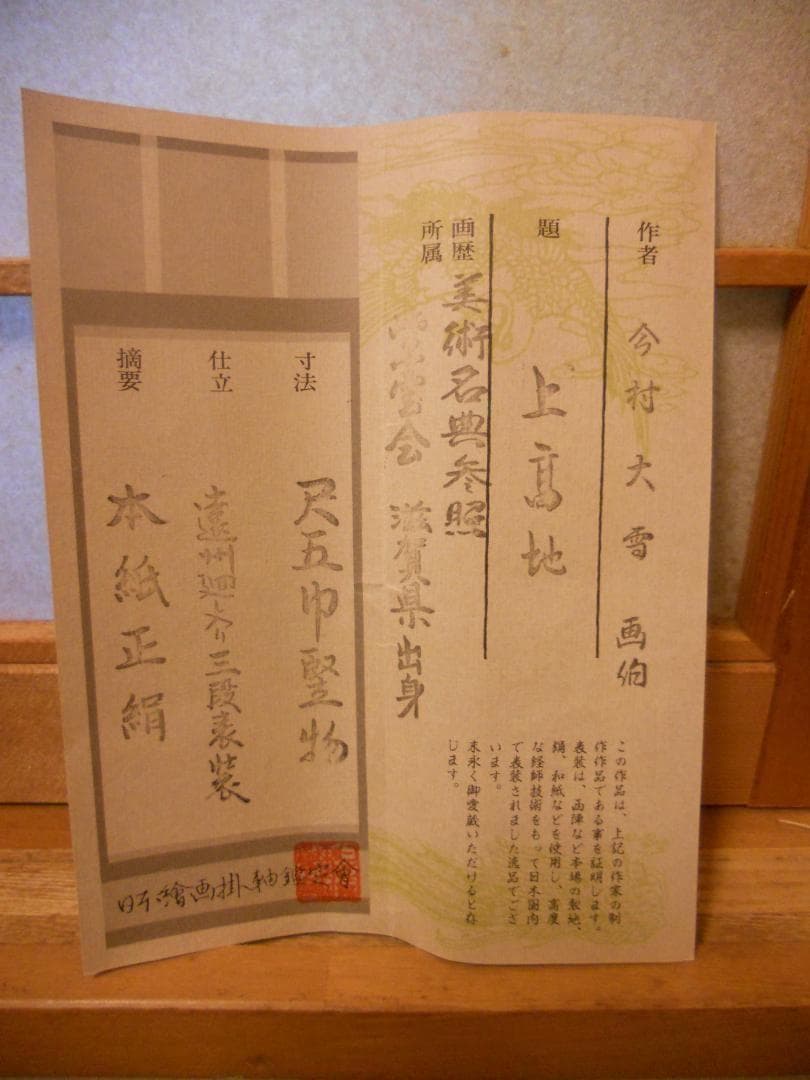 作者 今村大雪 画伯
題 上高地
画歴 美術名典参照
所属 会 滋賀県出身
この作品は、上記の作家の制
作作品である事を証明します。
表装は、西陣など本場の裂地、
絹、和紙などを使用し、高度
な経師技術をもって日本国内
で表装されました逸品でござ
います。
末永く御愛蔵いただけると存
じます。
寸法 尺五巾竪物
仕立 遠州廻し 三段表装
摘要 本紙正絹
日本繪画掛軸鑑定會